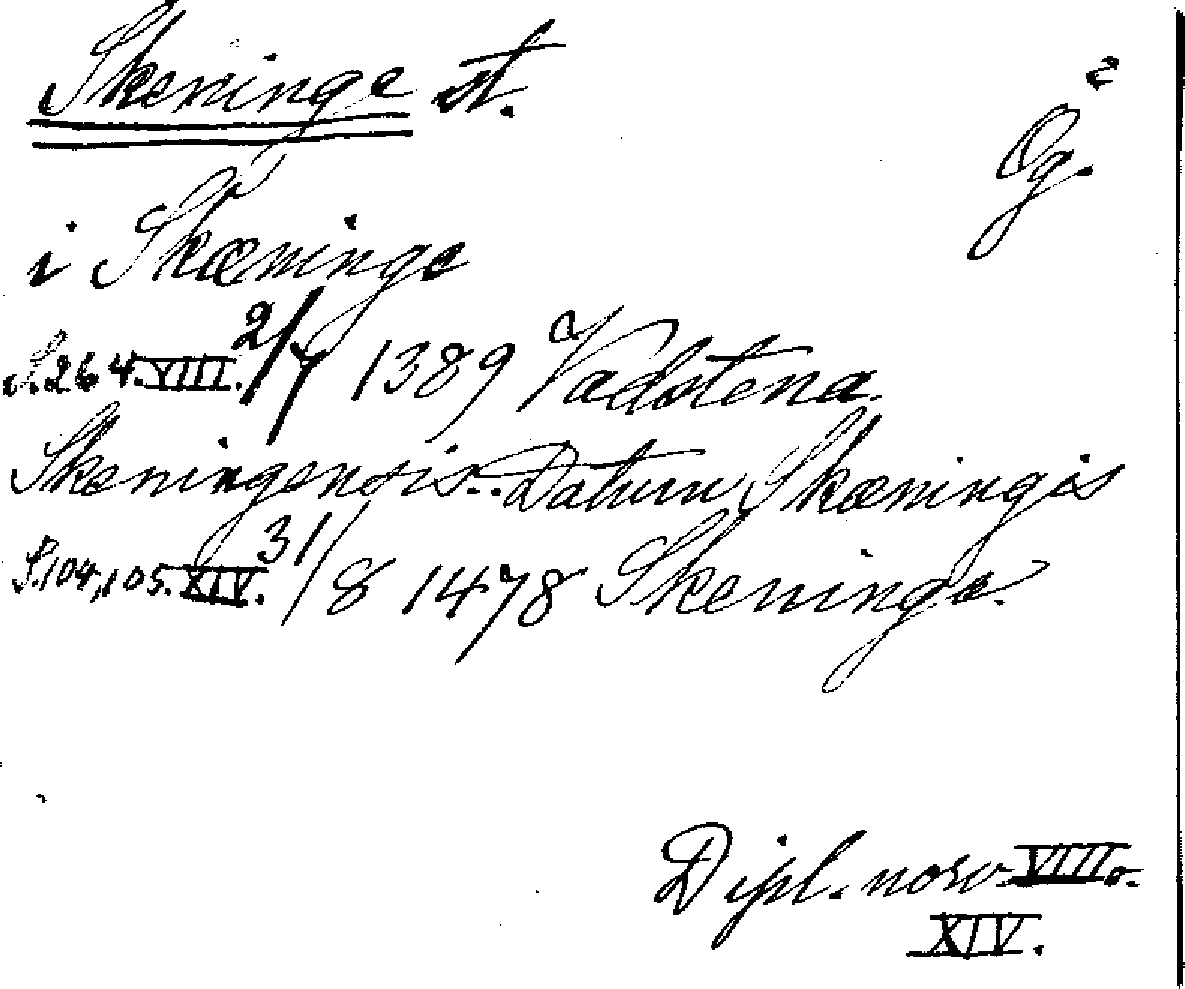 Skeninge st.
Ög.
i Skæninge
S. 264. VIII. 2/7 1389 Vadstena.
Skeningensis.. Datum Skæningis
S. 104, 105. XIV. 31/8 1478 Skeninge.
Dipl. norv. VIII o.
XIV.